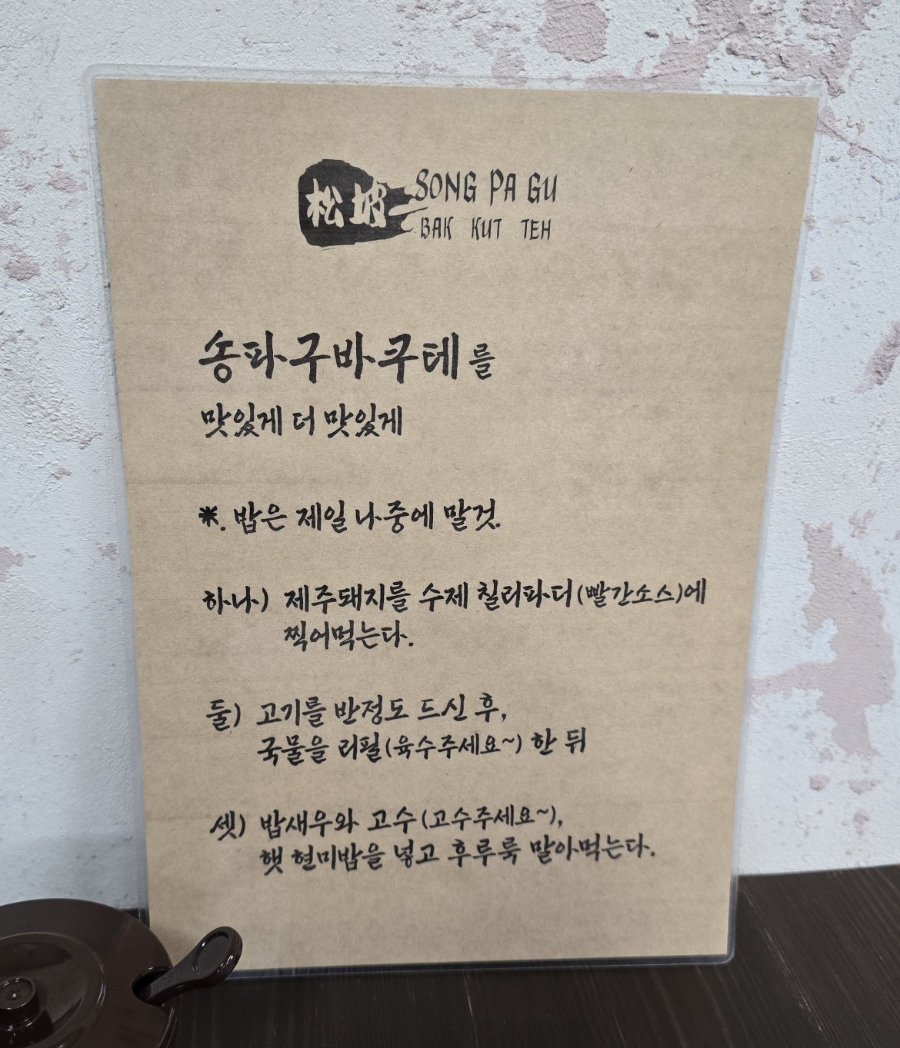 松坡 SONG PA GU
BAK KUT TEH
송파구바쿠테를
맛있게 더 맛있게
※. 밥은 제일 나중에 말것.
하나) 제주돼지를 수제 칠리파디(빨간소스)에
찍어먹는다.
둘) 고기를 반정도 드신 후,
국물을 리필(육수주세요~) 한 뒤
셋) 밥새우와 고수(고수주세요~),
햇 현미밥을 넣고 후루룩 말아먹는다.